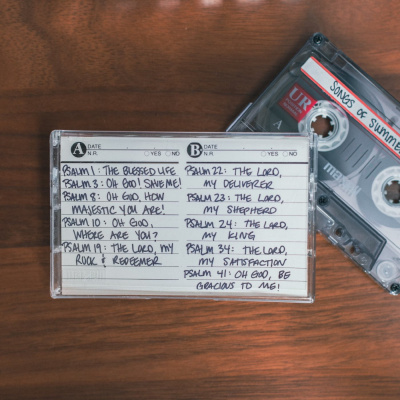 A DATE
N.R. YES NO
PSALM 1: THE BLESSED LIFE
PSALM 3: OH GOD! SAVE ME!
PSALM 8: OH GOD, HOW
MAJESTIC YOU ARE!
PSALM 10: OH GOD,
WHERE ARE YOU?
PSALM 19: THE LORD, MY
ROCK & REDEEMER
B DATE
N.R. YES NO
PSALM 22: THE LORD,
MY DELIVERER
PSALM 23: THE LORD,
MY SHEPHERD
PSALM 24: THE LORD,
MY KING
PSALM 34: THE LORD,
MY SATISFACTION
PSALM 41: OH GOD, BE
GRACIOUS TO ME!
SONGS OF SUMME
UR
maxell